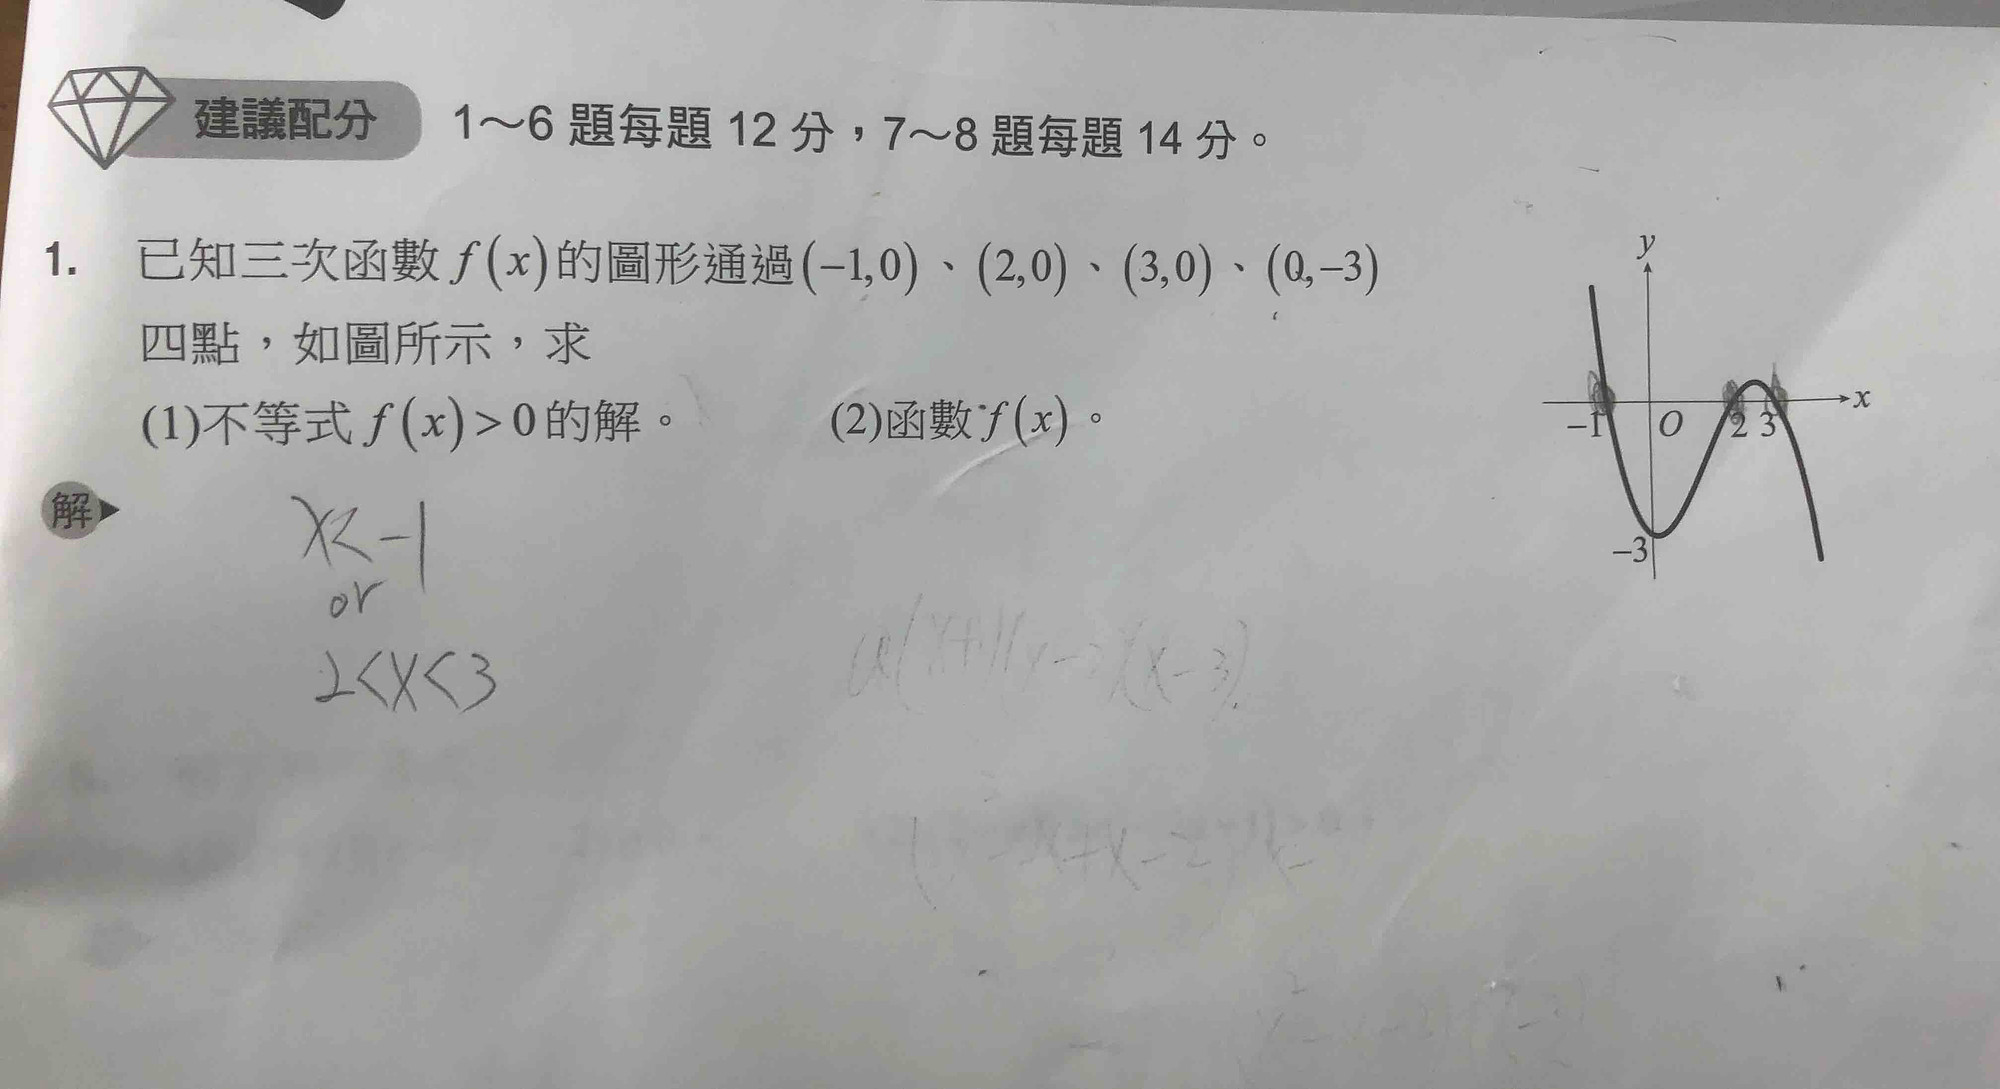 建議配分 1～6 題每題 12 分，7～8 題每題 14 分。
1. 已知三次函數 f(x) 的圖形通過 (−1,0)、(2,0)、(3,0)、(0,−3)
四點，如圖所示，求
(1)不等式 f(x)>0 的解。 (2)函數 f(x)。
解
x<-1
or
2<x<3
(x-3)
y
x
−1 O 2 3
−3